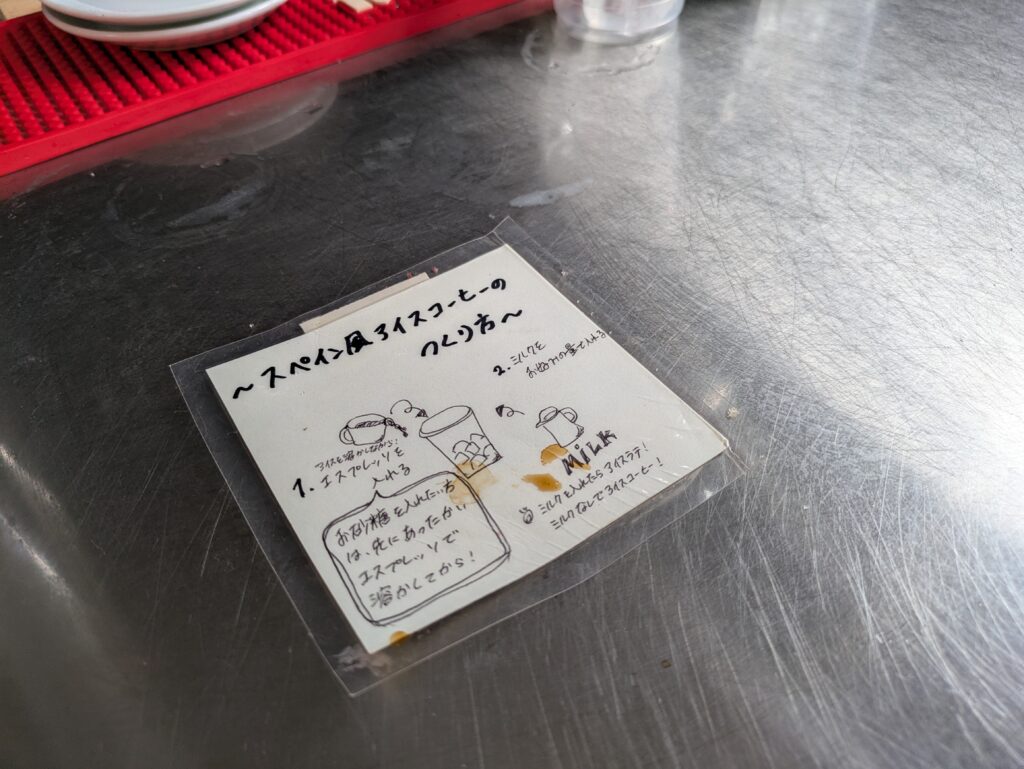 ～スペイン風アイスコーヒーの
つくり方～
アイスを溶かしながら!
1. エスプレッソを
入れる
お砂糖を入れたい方
は、先にあったかい
エスプレッソで
溶かしてから!
2. ミルクを
お好みの量で入れる
MiLK
ミルクを入れたらアイスラテ!
ミルクなしでアイスコーヒー!